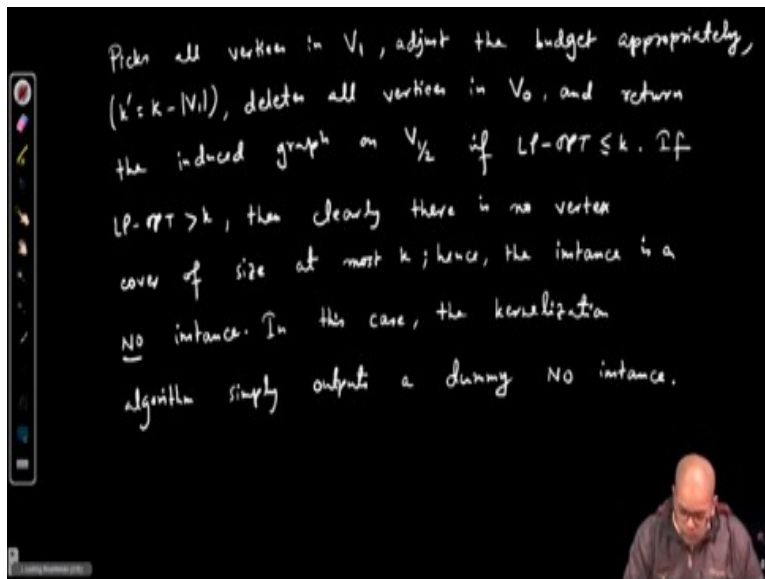 Picks all vertices in V₁, adjust the budget appropriately,
(k' = k - |V₁|), deletes all vertices in V₀, and return
the induced graph on V_{1/2} if LP-OPT ≤ k. If
LP-OPT > k, then clearly there is no vertex
cover of size at most k; hence, the instance is a
NO instance. In this case, the kernelization
algorithm simply outputs a dummy NO instance.